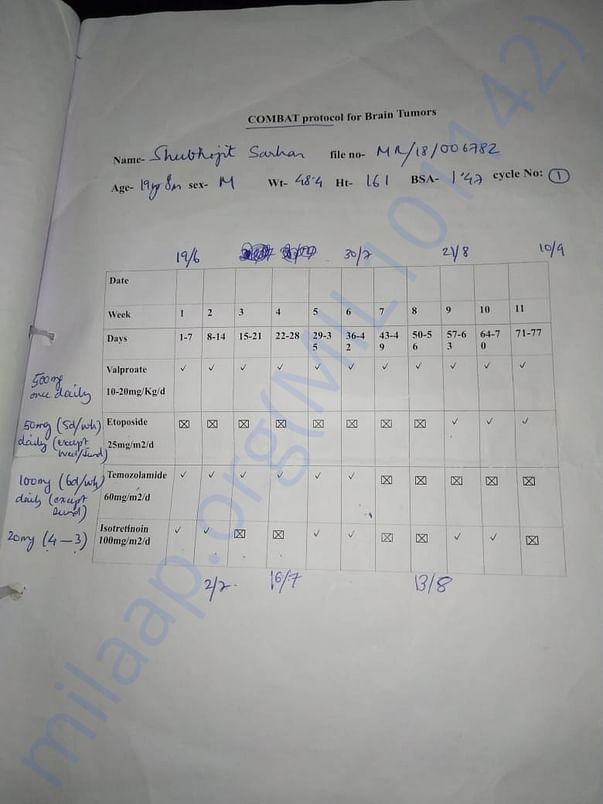 COMBAT protocol for Brain Tumors
Name- Shubhojit Sarkar file no- MR/18/006782
Age- 19yr 8m sex- M Wt- 48.4 Ht- 161 BSA- 1.47 cycle No: 1
19/6 30/7 21/8 10/9
Date
Week 1 2 3 4 5 6 7 8 9 10 11
Days 1-7 8-14 15-21 22-28 29-35 36-42 43-49 50-56 57-63 64-70 71-77
500mg once daily Valproate ✓ ✓ ✓ ✓ ✓ ✓ ✓ ✓ ✓ ✓ ✓
10-20mg/Kg/d
50mg (5d/wk) Etoposide ☒ ☒ ☒ ☒ ☒ ☒ ☒ ☒ ✓ ✓ ✓
daily (except Wed/Sund) 25mg/m2/d
100mg (6d/wk) Temozolamide ✓ ✓ ✓ ✓ ✓ ✓ ☒ ☒ ☒ ☒ ☒
daily (except Sund) 60mg/m2/d
20mg (4-3) Isotretinoin ✓ ✓ ☒ ☒ ✓ ✓ ☒ ☒ ✓ ✓ ☒
100mg/m2/d
2/7 16/7 13/8
milaap.org(MIL101142)